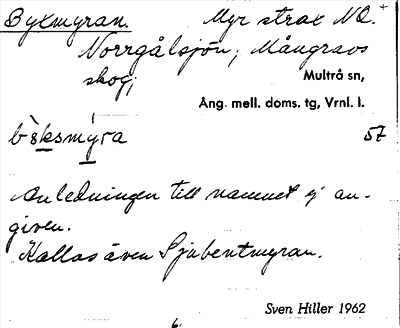 Byxmyran. Myr strax NO. +
Norrgålsjön; Mångravs
skog;
Multrå sn,
Ång. mell. doms. tg, Vrnl. l.
bỳksmýra 57
Anledningen till namnet ej an-
given.
Kallas även Sjubentmyran.
Sven Hiller 1962